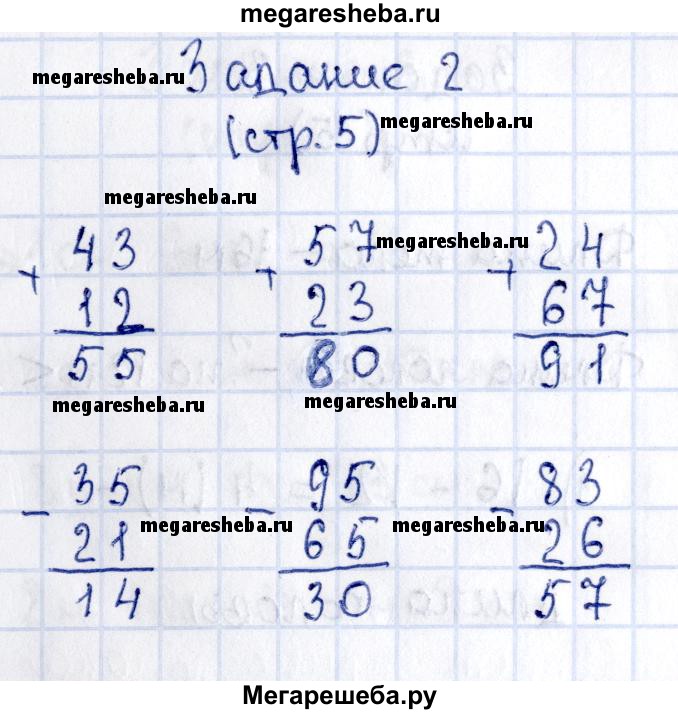 megaresheba.ru
megaresheba.ru Задание 2
(стр. 5) megaresheba.ru
megaresheba.ru
43 57 megaresheba.ru 24
+ + +
12 23 67
55 80 91
megaresheba.ru megaresheba.ru
35 95 83
- - -
21 megaresheba.ru 65 megaresheba.ru 26
14 30 57
Мегарешеба.ру